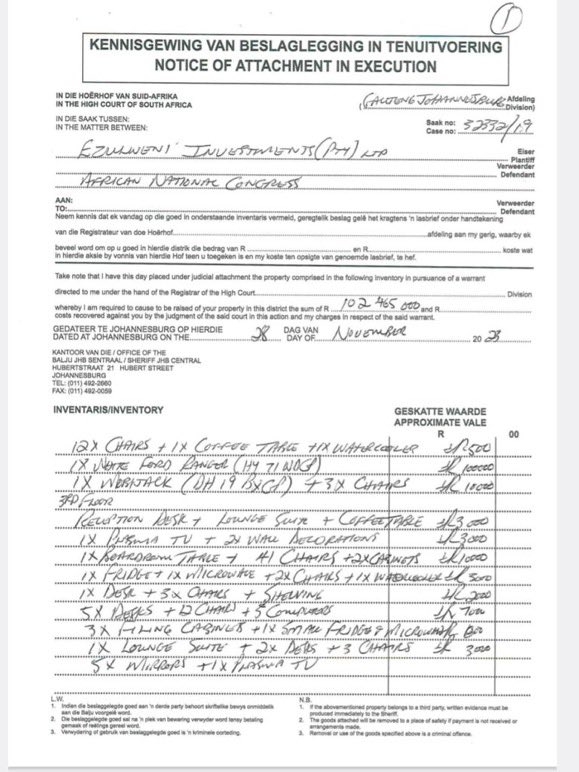 1
KENNISGEWING VAN BESLAGLEGGING IN TENUITVOERING
NOTICE OF ATTACHMENT IN EXECUTION
IN DIE HOËRHOF VAN SUID-AFRIKA
IN THE HIGH COURT OF SOUTH AFRICA
(GAUTENG JOHANNESBURG Afdeling
Division)
IN DIE SAAK TUSSEN:
IN THE MATTER BETWEEN:
Saak no:
Case no: 32332/19
EZULWENI INVESTMENTS (PTY) LTD
Eiser
Plaintiff
Verweerder
Defendant
AFRICAN NATIONAL CONGRESS
AAN:
TO:
Verweerder
Defendant
Neem kennis dat ek vandag op die goed in onderstaande inventaris vermeld, geregtelik beslag gelê het kragtens 'n lasbrief onder handtekening
van die Registrateur van doe Hoërhof afdeling aan my gerig, waarby ek
beveel word om op u goed in hierdie distrik die bedrag van R en R koste wat
in hierdie aksie by vonnis van hierdie Hof teen u toegeken is en my koste ten opsigte van genoemde lasbrief, te hef.
Take note that I have this day placed under judicial attachment the property comprised in the following inventory in pursuance of a warrant
directed to me under the hand of the Registrar of the High Court Division
whereby I am required to cause to be raised of your property in this district the sum of R 102 465 000 and R
costs recovered against you by the judgment of the said court in this action and my charges in respect of the said warrant.
GEDATEER TE JOHANNESBURG OP HIERDIE
DATED AT JOHANNESBURG ON THE 28 DAG VAN
DAY OF NOVEMBER 20 23
KANTOOR VAN DIE / OFFICE OF THE
BALJU JHB SENTRAAL / SHERIFF JHB CENTRAL
HUBERTSTRAAT 21 HUBERT STREET
JOHANNESBURG
TEL: (011) 492-2660
FAX: (011) 492-0059
INVENTARIS/INVENTORY
GESKATTE WAARDE
APPROXIMATE VALE
R 00
12X CHAIRS + 1X COFFEE TABLE + 1X WATERCOOLER 500
1X WHITE FORD RANGER (HY 71 GP) 100000
1X (DH 19 GP) + 3X CHAIRS 10000
3RD FLOOR
RECEPTION DESK + LOUNGE SUITE + COFFEE TABLE 3000
1X PLASMA TV + 2X WALL DECORATIONS 3000
1X BOARDROOM TABLE + 41 CHAIRS + 2X CABINETS 1000
1X FRIDGE + 1X MICROWAVE + 2X CHAIRS + 1X WATERCOOLER
1X DESK + 3X CHAIRS + SHELVING 2000
5X DESKS + 12 CHAIRS + 5 COMPUTERS 7000
3X FILING CABINETS + 1X SMALL FRIDGE + MICROWAVE
1X LOUNGE SUITE + 2X DESKS + 3 CHAIRS 3000
5X MIRRORS + 1X PLASMA TV
L.W.
1. Indien die beslaggelegde goed aan 'n derde party behoort skriftelike bewys onmiddelik
aan die Balju voorgelê word.
2. Die beslaggelegde goed sal na 'n plek van bewaring verwyder word tensy betaling
gemaak of reëlings gereel word.
3. Verwydering of gebruik van beslaggelegde goed is 'n kriminele oortreding.
N.B.
1. If the abovementioned property belongs to a third party, written evidence must be
produced immediately to the Sheriff.
2. The goods attached will be removed to a place of safety if payment is not received or
arrangements made.
3. Removal or use of the goods specified above is a criminal offence.